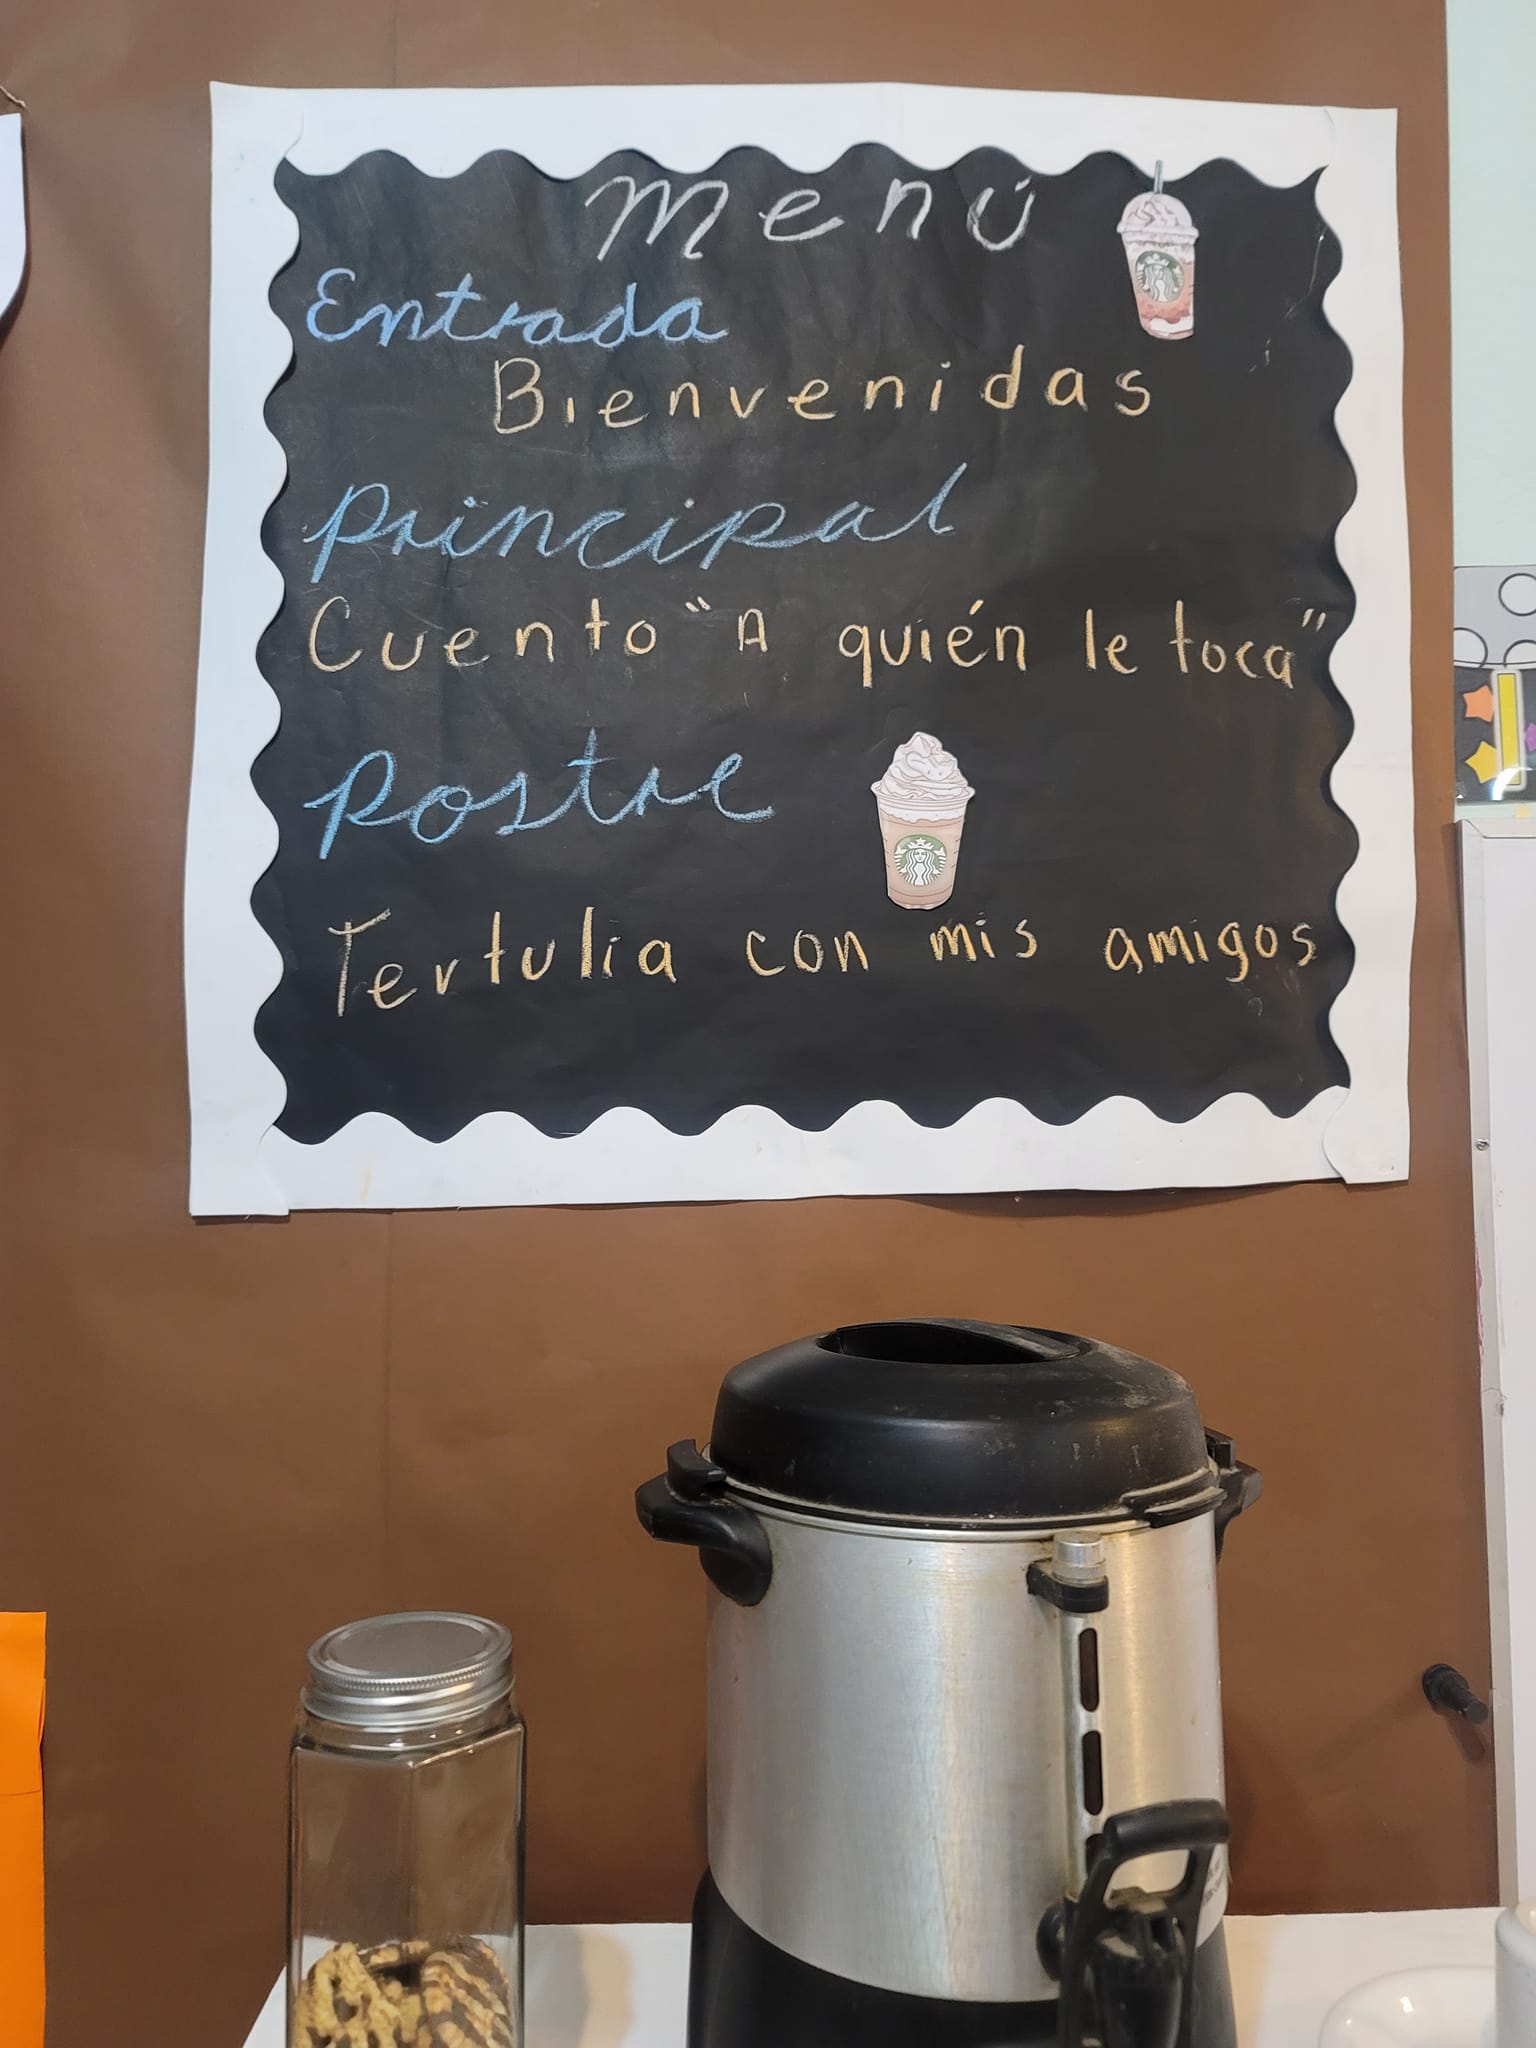 Menú
Entrada
Bienvenidas
Principal
Cuento "A quién le toca"
Postre
Tertulia con mis amigos